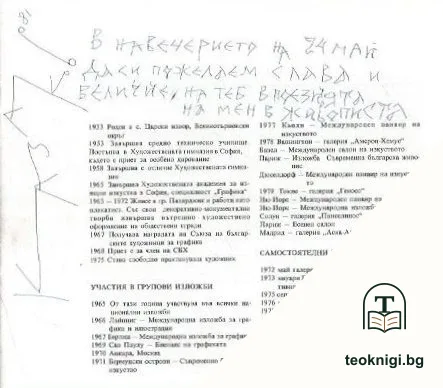 В НАВЕЧЕРИЕТО НА 24 МАЙ
ДА СИ ПОЖЕЛАЕМ СЛАВА И
ВЕЛИЧИЕ, НА ТЕБ В ПОЕЗИЯТА
НА МЕН В ЖИВОПИСТА
1933 Роден в с. Царски извор, Великотърновски
окръг
1953 Завършва средно техническо училище
Постъпва в Художествената гимназия в София,
където е приет за особено дарование
1958 Завършва с отличие Художествената гимна-
зия
1965 Завършва Художествената академия за из-
ящни изкуства в София, специалност „Графика“
1965 — 1972 Живее в гр. Пазарджик и работи като
плакатист. Със свои декоративно-монументални
творби извършва вътрешно художествено
оформление на обществени сгради
1967 Получава наградата на Съюза на българ-
ските художници за графика
1968 Приет е за член на СБХ
1975 Става свободно практикуващ художник
УЧАСТИЯ В ГРУПОВИ ИЗЛОЖБИ
1965 От тази година участвува във всички на-
ционални изложби
1966 Лайпциг — Международна изложба за гра-
фика и илюстрация
1967 Берлин — Международна изложба за графи
1969 Сао Пауло — Биенале на графиката
1970 Анкара, Москва
1971 Бермудски острови — Съвременно
изкуство
1977 Кьолн — Международен панаир на
изкуството
1978 Вашингтон — галерия
Базел — Международен салон на изкуството
Париж — Изложба Съвременна българска живо-
пис
Дюселдорф — Международен панаир на изкуст
то
1979 Генова — галерия
Ню-Йорк — Международен панаир на
Ню-Йорк — Международна изложб
Солун — галерия
Париж — Есенен салон
Мадрид — галерия
САМОСТОЯТЕЛНИ
1972 май галер
1973 януари
1975 сеп
1976
197
T
teoknigi.bg